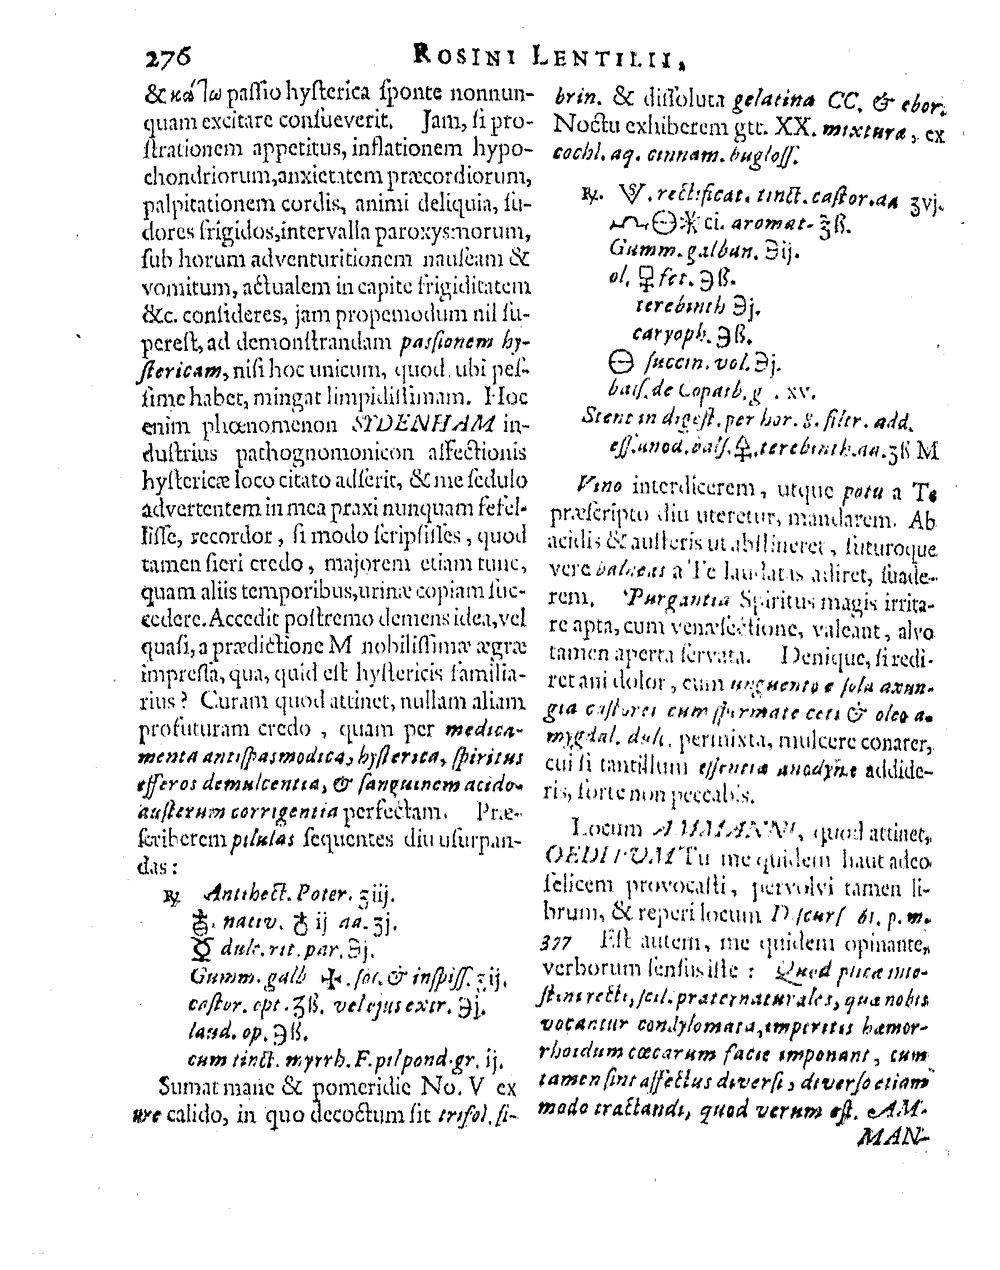 276 ROSINI LENTILII,
& κάτω passio hysterica sponte nonnun-
quam excitare consueverit. Jam, si pro-
strationem appetitus, inflationem hypo-
chondriorum, anxietatem præcordiorum,
palpitationem cordis, animi deliquia, su-
dores frigidos, intervalla paroxysmorum,
sub horum adventuritionem nauseam &
vomitum, actualem in capite frigiditatem
&c. consideres, jam propemodum nil su-
perest, ad demonstrandam passionem hy-
stericam, nisi hoc unicum, quod, ubi pes-
sime habet, mingat limpidissimam. Hoc
enim phœnomenon SYDENHAM in-
dustrius pathognomonicon affectionis
hystericæ loco citato adserit, & me sedulo
advertentem in mea praxi nunquam fefel-
lisse, recordor, si modo scripsisses, quod
tamen fieri credo, majorem etiam tunc,
quam aliis temporibus, urinæ copiam suc-
cedere. Accedit postremo demens idea, vel
quasi, a prædictione M nobilissimæ ægræ
impressa, qua, quid est hystericis familia-
rius? Curam quod attinet, nullam aliam
profuturam credo, quam per medica-
menta antispasmodica, hysterica, spiritus
efferos demulcentia, & sanguinem acido-
austerum corrigentia perfectam. Præ-
scriberem pilulas sequentes diu usurpan-
das:
℞ Antihect. Poter. ʒiij.
♁. nativ. ♁ ij aa. ʒj.
☿ dulc. rit. par. ℈j.
Gumm. galb ✠. sol. & inspiss. ʒij.
castor. opt. ʒß. vel ejus extr. ℈j.
laud. op. ℈ß.
cum tinct. myrrh. F. pil pond. gr. ij.
Sumat mane & pomeridie No. V ex
jure calido, in quo decoctum sit trifol. fi-
brin. & dissoluta gelatina CC. & ebor.
Noctu exhiberem gtt. XX. mixturæ, ex
cochl. aq. cinnam. bugloss.
℞. . rectificat. tinct. castor. aa ʒvj.
🜖 ci. aromat. ℥ß.
Gumm. galban. ℈ij.
ol. fœt. ℈ß.
terebinth ℈j.
caryoph. ℈ß.
succin. vol. ℈j.
bals. de Copaib. g . xv.
Stent in digest. per hor. 8. filtr. add.
ess. anod. bals. 🜍. terebinth. aa. ʒß M
Vino interdicerem, utque potu a Te
præscripto diu uteretur, mandarem. Ab
acidis & austeris ut abstineret, futuroque
vere balneas a Te laudatas adiret, suade-
rem. Purgantia Spiritus magis irrita-
re apta, cum venæsectione, valeant, alvo
tamen aperta servata. Denique, si redi-
ret ani dolor, cum unguento e sola axun-
gia castorei cum spermate ceti & oleo a-
mygdal. dulc. permixta, mulcere conarer,
cui si tantillum essentiæ anodynæ addide-
ris, forte non peccabis.
Locum AMMANNI, quod attinet,
OEDIPUM Tu me quidem haut adeo
felicem provocasti, pervolvi tamen li-
brum, & reperi locum Discurs 61. p. m.
377 Est autem, me quidem opinante,
verborum sensus iste: Quod plicæ inte-
stini recti, scil. præternaturales, quæ nobis
vocantur condylomata, imperitis hæmor-
rhoidum cœcarum facie imponant, cum
tamen sint affectus diversi, diverso etiam
modo tractandi, quod verum est. AM-
MAN-